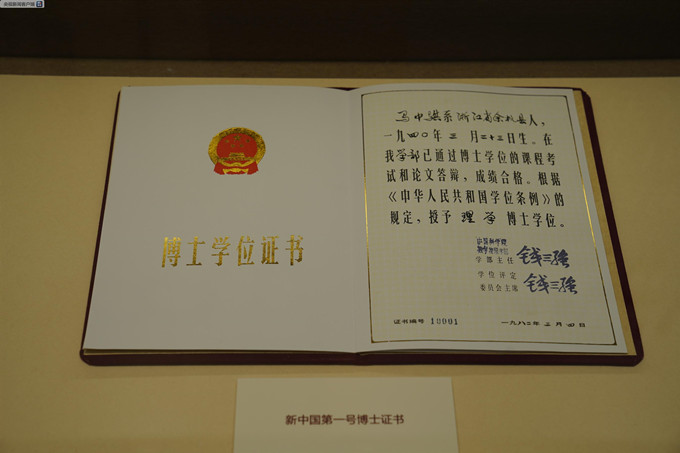 央视新闻客户端
博士学位证书
马中骐系浙江省余杭县人，
一九四〇年三月二十三日生。在
我学部已通过博士学位的课程考
试和论文答辩，成绩合格。根据
《中华人民共和国学位条例》的
规定，授予 理学 博士学位。
学部主任 钱三强
学位评定
委员会主席 钱三强
证书编号 10001
一九八二年三月四日
新中国第一号博士证书